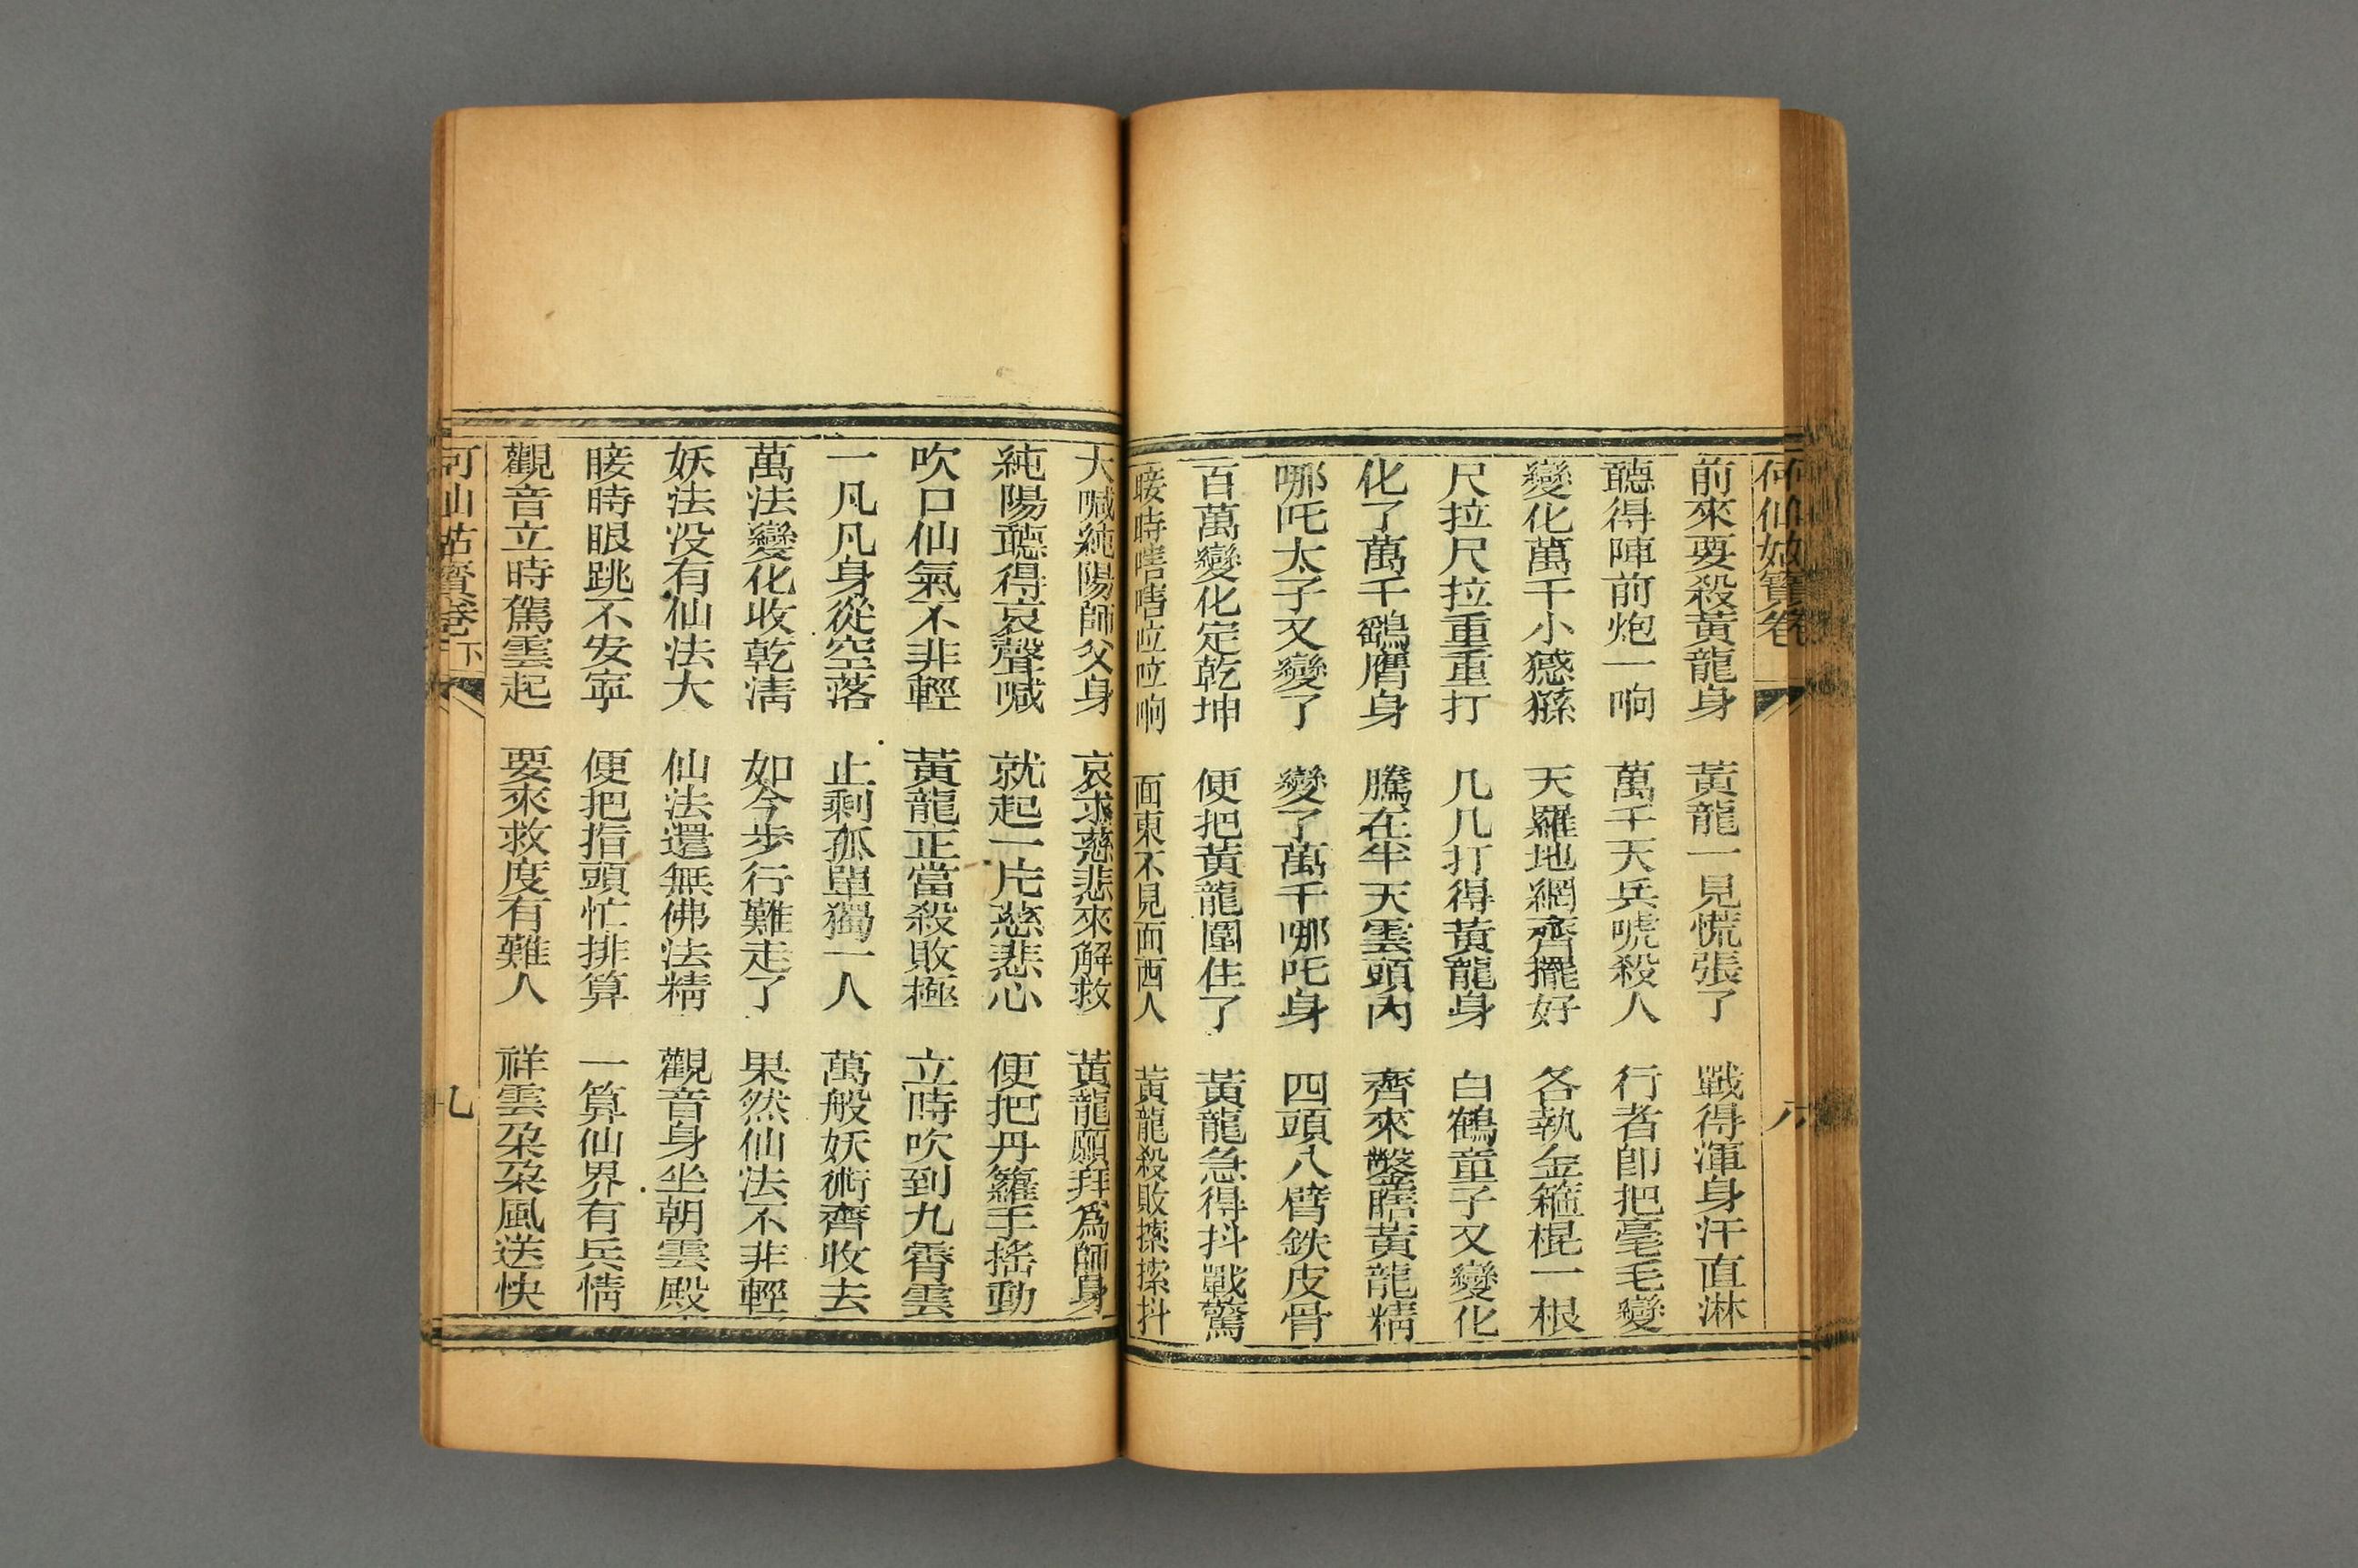 何仙姑寶卷
八
前來要殺黃龍身　黃龍一見慌張了　戰得渾身汗直淋
聽得陣前炮一响　萬千天兵唬殺人　行者卽把毫毛變
變化萬千小猻　天羅地網齊擺好　各執金箍棍一根
尺拉尺拉重重打　几几打得黃龍身　白鶴童子又變化
化了萬千鶴鷹身　騰在半天雲頭內　齊來鑿瞎黃龍精
哪吒太子又變了　變了萬千哪吒身　四頭八臂鉄皮骨
百萬變化定乾坤　便把黃龍圍住了　黃龍急得抖戰驚
時嘻嘻啦啦响　面東不見面西人　黃龍殺敗索抖
大喊純陽師父身　哀求慈悲來解救　黃龍願拜爲師身
純陽聽得哀聲喊　就起一片慈悲心　便把丹籮手搖動
吹口仙氣不非輕　黃龍正當殺敗極　立時吹到九霄雲
一凡凡身從空落　止剩孤單獨一人　萬般妖術齊收去
萬法變化收乾淸　如今步行難走了　果然仙法不非輕
妖法没有仙法大　仙法還無佛法精　觀音身坐朝雲殿
時眼跳不安寧　便把指頭忙排算　一算仙界有兵情
觀音立時駕雲起　要來救度有難人　祥雲朶朶風送快
何仙姑寶卷下
九